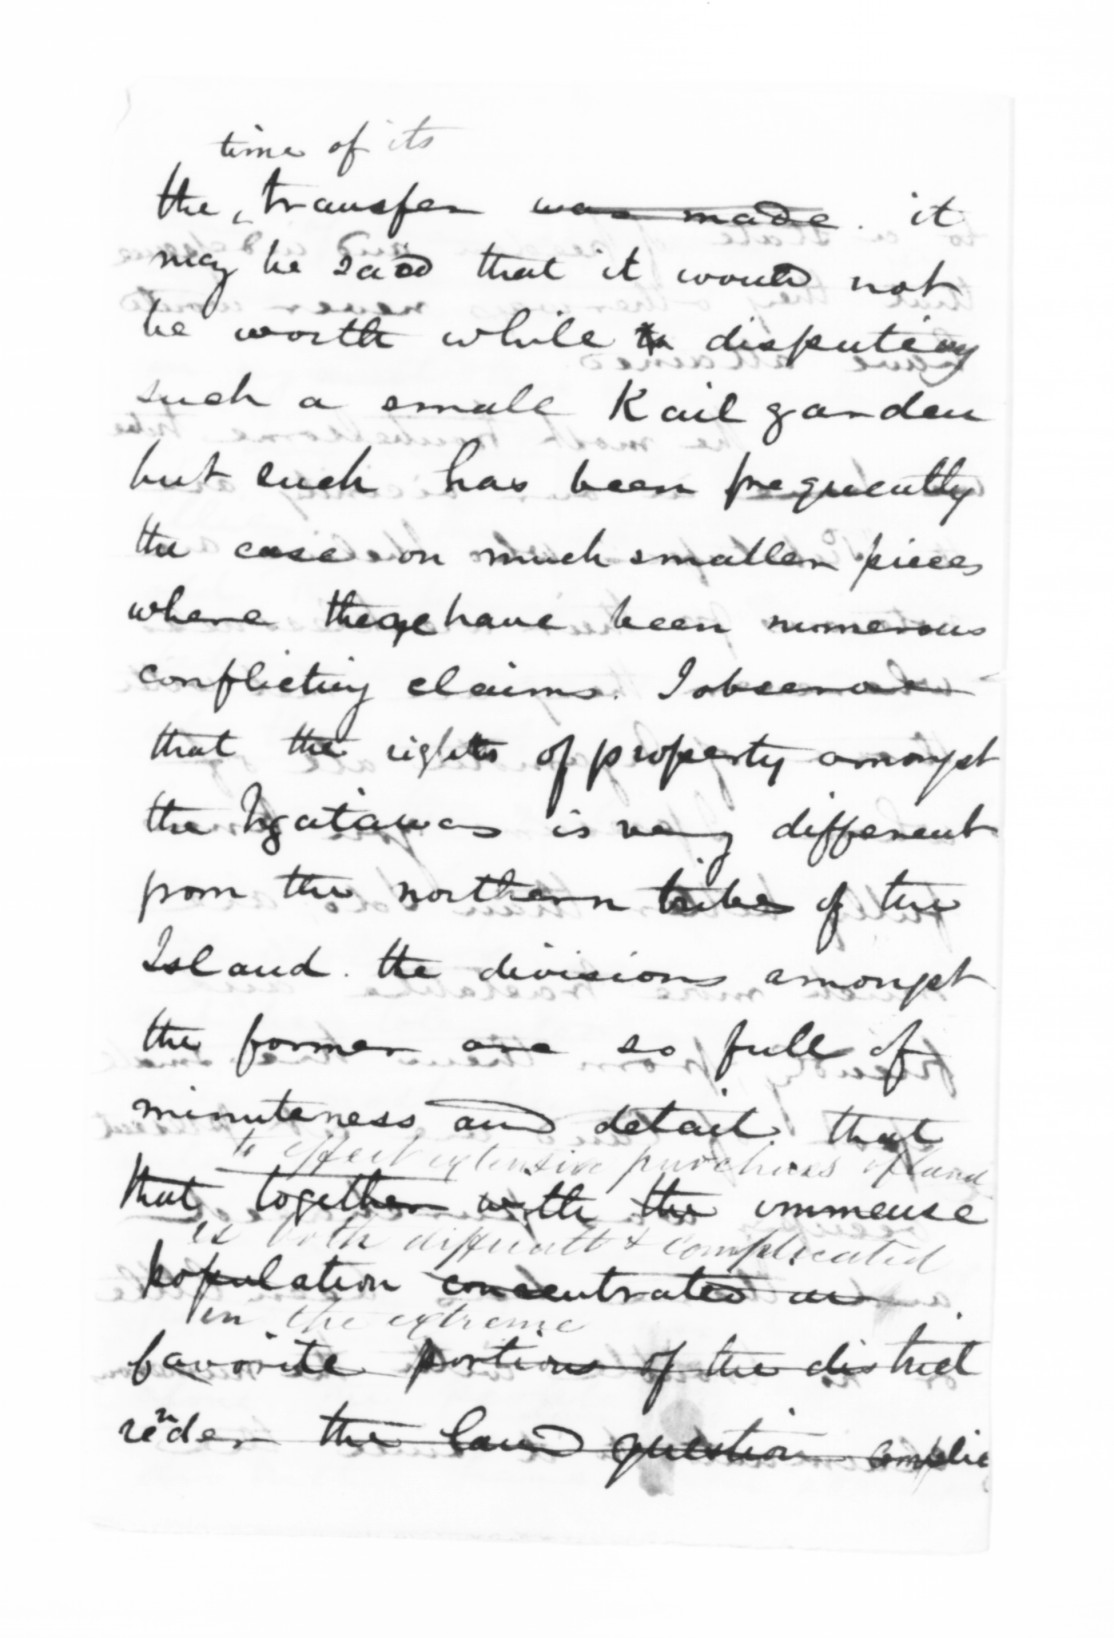 time of its
the transfer was made. it
may be said that it would not
be worth while disputing
such a small Kail garden
but such has been frequently
the case on much smaller pieces
where there have been numerous
conflicting claims. I observe
that the rights of property amongst
the Ngatiawas is very different
from the northern tribes of the
Island. the divisions amongst
the former are so full of
minuteness and detail that
to effect extensive purchases of land
that together with the immense
is both difficult & complicated
population concentrated in
in the extreme
favorite portions of the district
render the land question complic